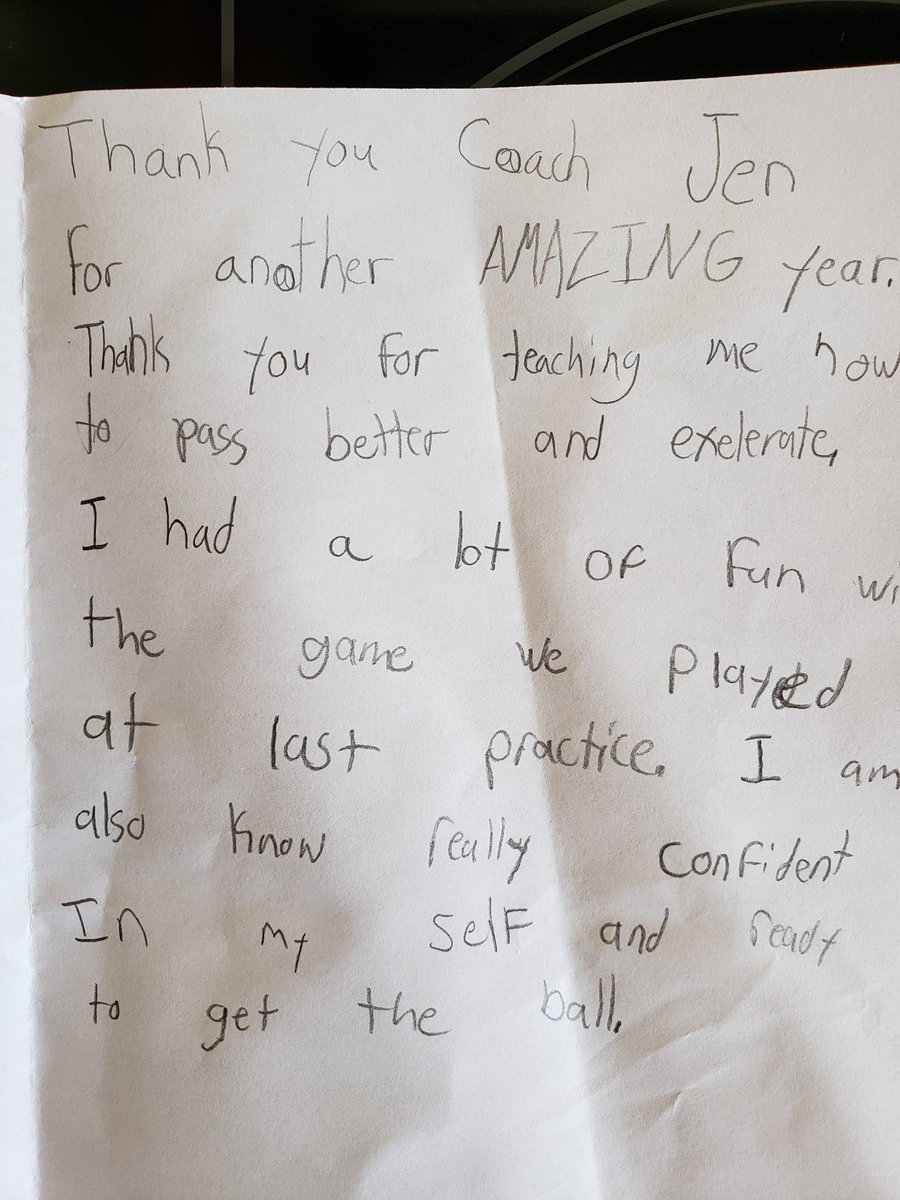 Thank you Coach Jen
for another AMAZING year.
Thank you for teaching me how
to pass better and exelerate,
I had a lot of fun wi
the game we played
at last practice. I am
also know really confident
In my self and ready
to get the ball.